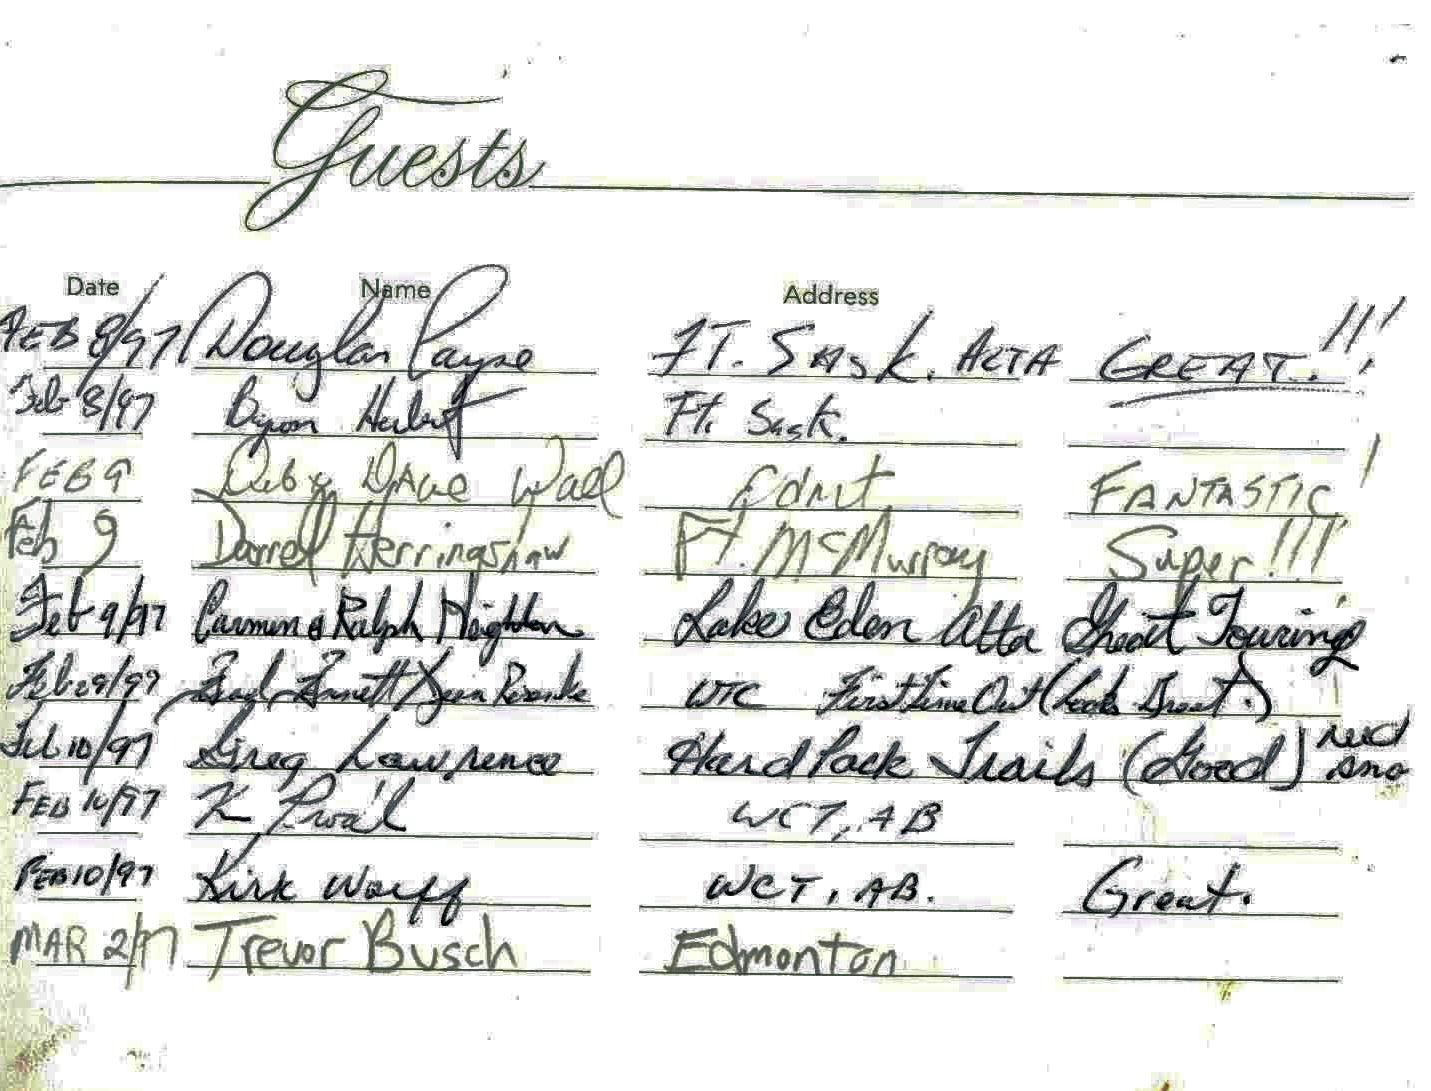 Guests
Date Name Address
FEB 8/97 Douglas Payne FT. SASK. ALTA GREAT!!!
Feb 8/97 Byron Ft. Sask.
FEB 9 Deb & Dave Wall Edmt FANTASTIC!
Feb 9 Darrel Herringshaw Ft. McMurray Super!!!
Feb 9/97 Carmen & Ralph Lake Eden Alta Great Touring
Feb 29/97 First Time Out (Looks Great.)
Feb 10/97 Greg Lawrence Hard Pack Trails (Good) need sno
FEB 10/97 K WCT, AB
FEB 10/97 Kirk WCT, AB. Great.
MAR 2/97 Trevor Busch Edmonton